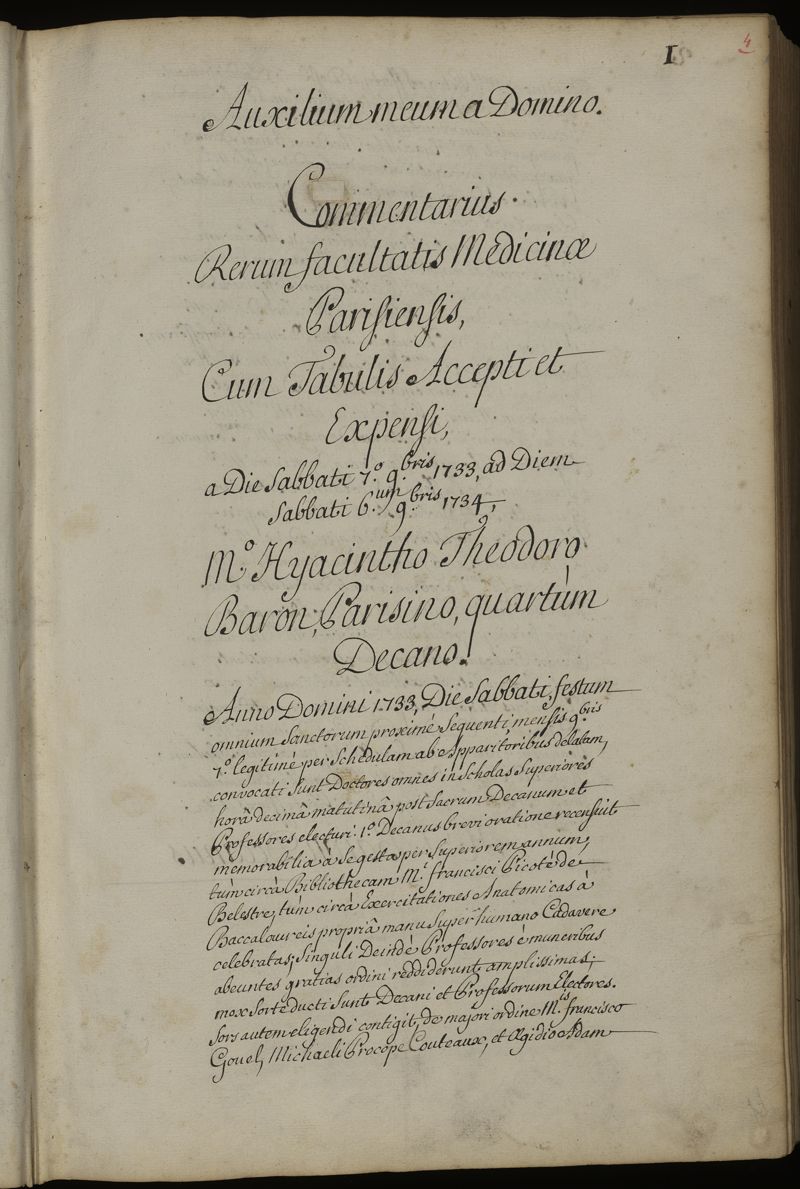 4
I
Auxilium meum a Domino.
Commentarius
Rerum facultatis Medicinæ
Parisiensis,
Cum Tabulis Accepti et
Expensi,
a Die Sabbati 7.º 9.bris 1733, ad Diem
Sabbati 6.um 9.bris 1734,
M.º Hyacintho Theodoro
Baron, Parisino, quartùm
Decano.
Anno Domini 1733, Die Sabbati, festum
omnium Sanctorum proximè Sequenti, mensis 9.bris
7.º legitimè per Schedulam ab Apparitoribus delatam,
convocati Sunt Doctores omnes in Scholas Superiores
horâ decimâ matutinâ post Sacrum Decanum et
Professores electuri. 1.º Decanus brevi oratione recensuit
memorabilia à Se gesta per Superiorem annum,
tùm circà Bibliothecam M.i francisci Picoté de
Belestre, tùm circà Exercitationes Anatomicas à
Baccalaureis propriâ manu Super humano Cadavere
celebratas; Singuli Deindè Professores è muneribus
abeuntes gratias ordini reddiderunt amplissimas;
mox Sorte ducti Sunt Decani et Professorum Electores.
Sors autem eligendi contigit, de majori ordine M.is francisco
Gouel, Michaeli Procope Couteaux, et Ægidio Adam